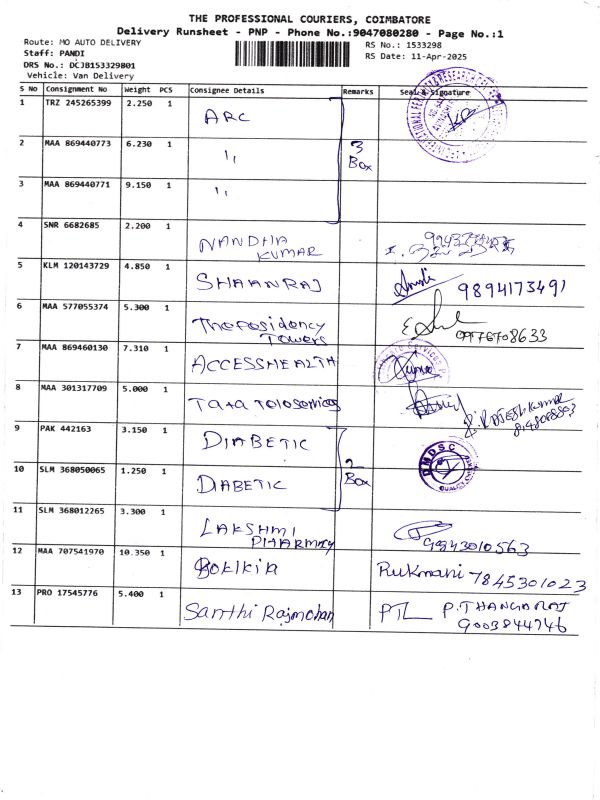 THE PROFESSIONAL COURIERS, COIMBATORE
Delivery Runsheet - PNP - Phone No.:9047080280 - Page No.:1
Route: MO AUTO DELIVERY
RS No.: 1533298
Staff: PANDI
RS Date: 11-Apr-2025
DRS No.: DCJB153329801
Vehicle: Van Delivery
S No Consignment No Weight PCS Consignee Details Remarks Seal & Signature
1 TRZ 245265399 2.250 1 ARC
2 MAA 869440773 6.230 1 ,, 3 Box
3 MAA 869440771 9.150 1 ,,
4 SNR 6682685 2.200 1 NANDHA KUMAR
5 KLM 120143729 4.850 1 SHAANRAJ 9894173491
6 MAA 577055374 5.300 1 Theresidency Towers
7 MAA 869460130 7.310 1 ACCESSHEALTH
8 MAA 301317709 5.000 1 Tata
9 PAK 442163 3.150 1 DIABETIC
10 SLM 368050065 1.250 1 DIABETIC 2 Box DMDSC
11 SLM 368012265 3.300 1 LAKSHMI PHARMACY 9943010563
12 MAA 707541970 10.350 1 Rukmani 7845301023
13 PRO 17545776 5.400 1 Santhi Rajmohan P.THANGARAJ
9003844746